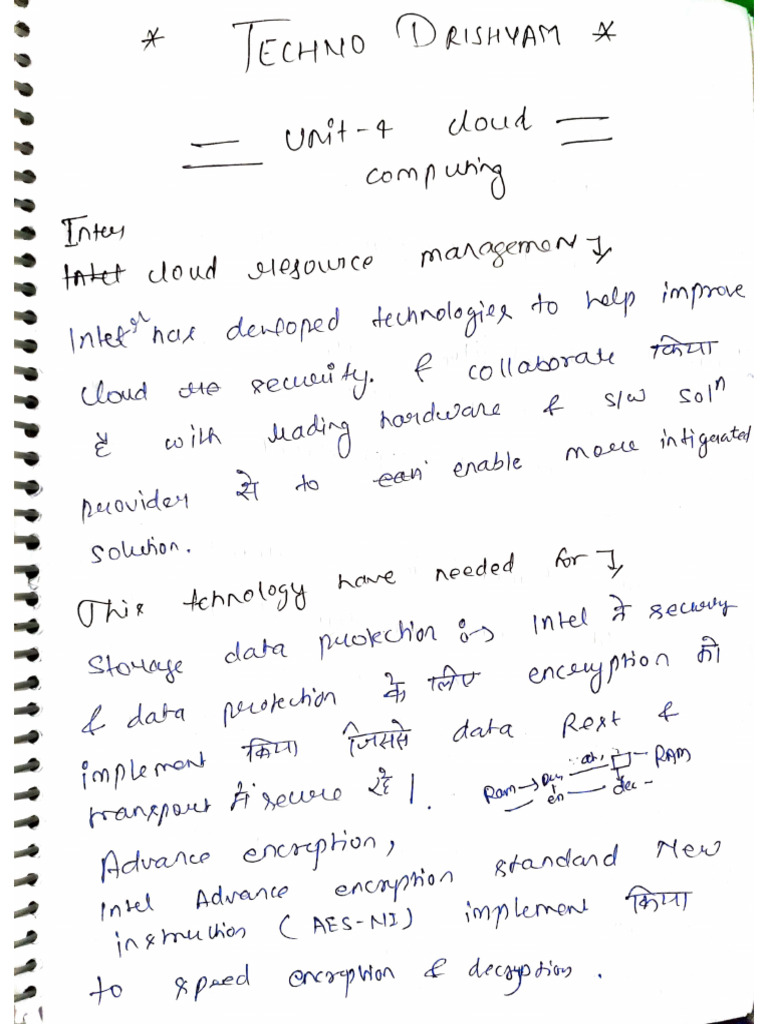 * TECHNO DRISHYAM *
Unit-4 cloud
computing
Inter
Intel cloud resource management
Intel has developed technologies to help improve
cloud security. & collaborate किया
है with leading hardware & s/w solⁿ
provider से to can enable more intigerated
solution.
This tchnology have needed for
Storage data protection :-> Intel ने security
& data protection के लिए enceryption को
implement किया जिससे data Rest &
transport में secure रहे।
Ram → - RAM
en dec -
Advance encrcption,
Intel Advance encryption standard New
instruction (AES-NI) implement किया
to speed encrcption & decryption.